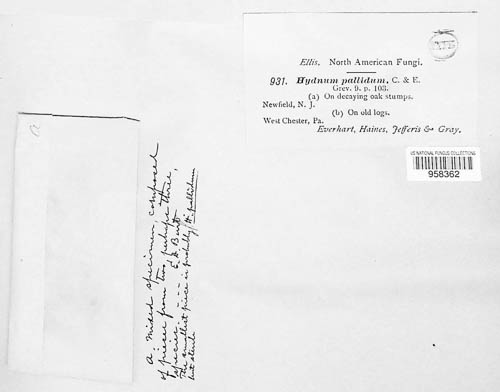 Ellis. North American Fungi.
931. Hydnum pallidum, C. & E.
Grev. 9. p. 103.
(a) On decaying oak stumps.
Newfield, N. J.
(b) On old logs.
West Chester, Pa.
Everhart, Haines, Jefferis & Gray.
US NATIONAL FUNGUS COLLECTIONS
958362
a
a: Mixed specimen, composed
of pieces from two, perhaps three,
species. --- E. A. Burt
The smallest piece is probably H. pallidum
but sterile